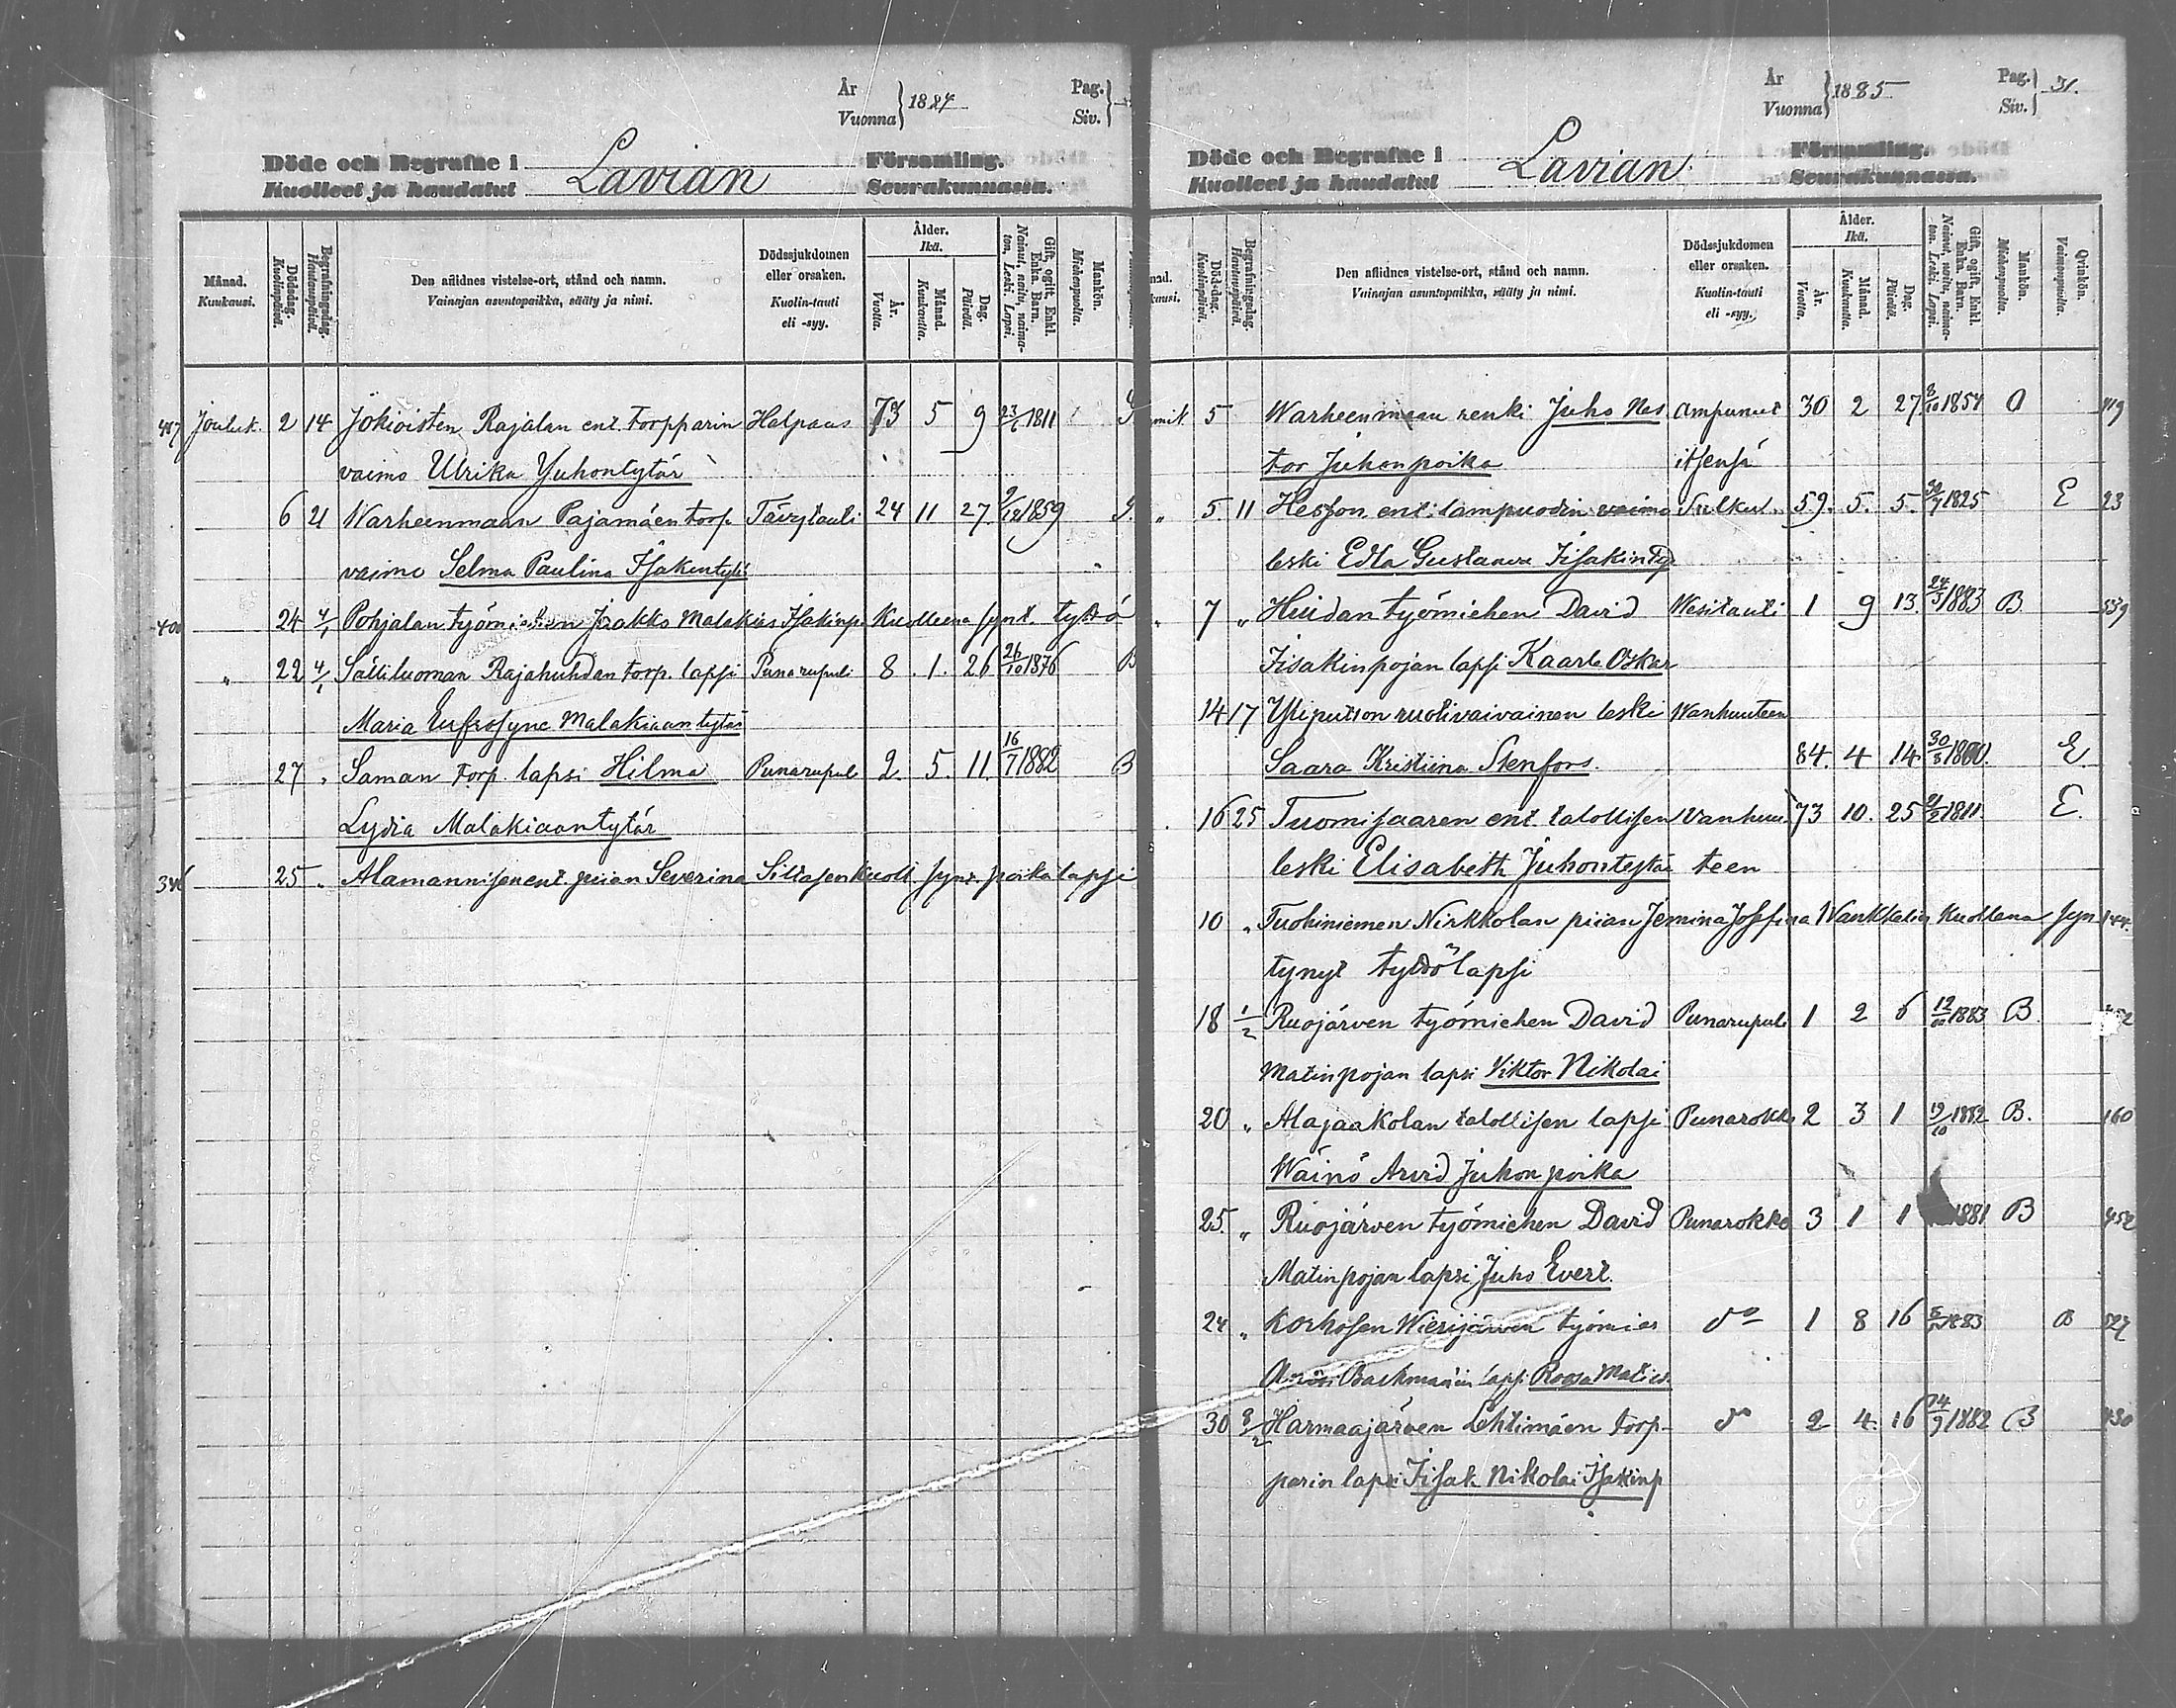 År
Vuonna } 1884
Pag.
Siv. }
Döde och Begrafne i
Kuolleet ja haudatut Lavian Församling.
Seurakunnassa.
Månad. Kuukausi.
Dödsdag. Kuolinpäivä.
Begrafningsdag. Hautauspäivä.
Den aflidnes vistelse-ort, stånd och namn.
Vainajan asuntopaikka, sääty ja nimi.
Dödssjukdomen eller orsaken.
Kuolin-tauti eli -syy.
Ålder. Ikä.
År. Vuotta.
Månad. Kuukautta.
Dag. Päivää.
Gift, ogift, Enkl. Enka. Barn.
Nainut, naitu, naimaton, Leski. Lapsi.
Mankön. Miehenpuolta.
407 Jouluk. 2 14 Jokioisten Rajalan ent. torpparin Halpaus 73 5 9 23/6 1811
vaimo Ulrika Juhontytär
6 21 Warheenmaan Pajamäen torp. Tävytauti 24 11 27. 9/12 1859
vaimo Selma Paulina Isakintytär
400 24 4/1 Pohjalan työmiehen Jaakko Malakias Isakinp. Kuolleena synt. tyttö
" 22 4/1 Sälliluoman Rajahuhdan torp. lapsi Punarupuli 8 1. 26 26/10 1876 B
Maria Eufrosyne Malakiaantytär
27 " Saman torp. lapsi Hilma Punarupul 2. 5. 11. 16/7 1882 B
Lydia Malakiaantytär
346 25 " Alamannisen ent. piian Severina Siltasen kuoll. synt. poikalapsi
År
Vuonna } 1885
Pag.
Siv. } 31.
Döde och Begrafne i
Kuolleet ja haudatut Lavian Församling.
Seurakunnassa.
Dödsdag. Kuolinpäivä.
Begrafningsdag. Hautauspäivä.
Den aflidnes vistelse-ort, stånd och namn.
Vainajan asuntopaikka, sääty ja nimi.
Dödssjukdomen eller orsaken.
Kuolin-tauti eli -syy.
Ålder. Ikä.
År. Vuotta.
Månad. Kuukautta.
Dag. Päivää.
Gift, ogift, Enkl. Enka. Barn.
Nainut, naitu, naimaton. Leski. Lapsi.
Mankön. Miehenpuolta.
Qvinkön. Vaimonpuolta.
5 Warheenmaan renki Juho Nes- Ampunut 30 2 27 1854 O 119
tor Juhonpoika itsensä
" 5. 11 Hesson ent. lampuodin vaimo Sulkut. 59. 5. 5. 30/7 1825 E 23
leski Edla Gustaava Iisakintyt
" 7 " Huidan työmiehen David Wesitauti 1 9 13. 24/3 1883 B 539
Iisakinpojan lapsi Kaarle Oskar
14 17 Yliputron ruotivaivainen leski Wanhuuteen
Saara Kristiina Stenfors. 84. 4 14 30/8 1800. E
16 25 Tuomisaaren ent. talollisen Vanhuu- 73 10. 25 21/2 1811 E.
leski Elisabeth Juhontytär teen
10 " Tuohiniemen Nirkkolan piian Jemina Josefina Wankkalin Kuollena syn- 144.
tynyt tyttölapsi
18 1/2 Ruojärven työmiehen David Punarupuli 1 2 6 12/11 1883 B
Matinpojan lapsi Viktor Nikolai
20 " Alajaakolan talollisen lapsi Punarokko 2 3 1 19/10 1882 B. 160
Wäinö Arvid Juhonpoika
25. " Ruojärven työmiehen David Punarokko 3 1 1 1881 B 452
Matinpojan lapsi Juho Evert.
24 " Korhosen Wierijärven työmies do 1 8 16 1883 B
Backmanin lapsi Roosa Matild.
30 8/2 Harmaajärven Lehtimäen torp- do 2 4. 16 14/9 1882 B 430
parin lapsi Iisak Nikolai Isakinp